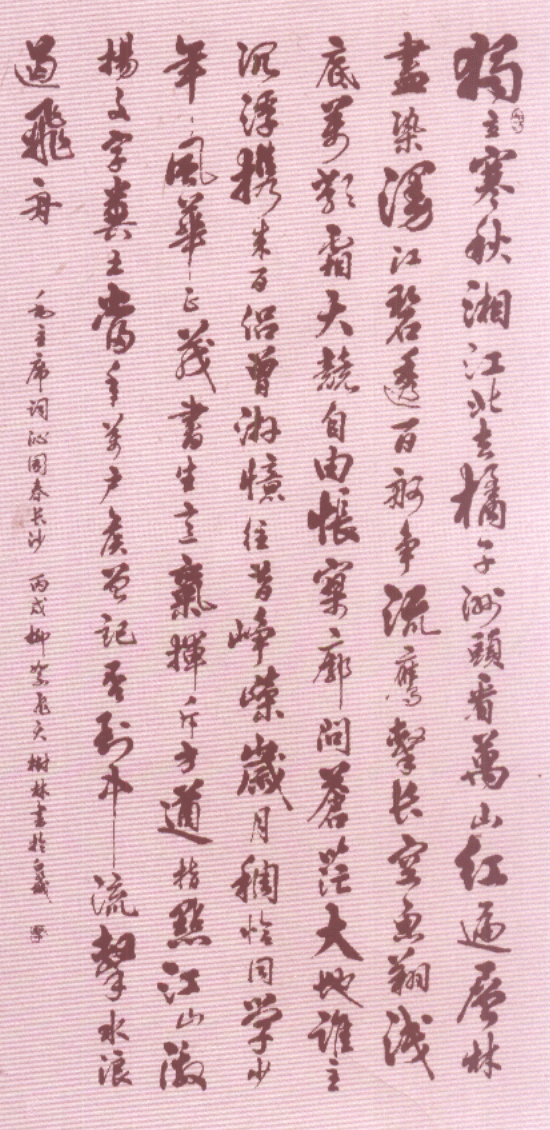 獨立寒秋湘江北去橘子洲頭看萬山紅遍層林
盡染漫江碧透百舸爭流鷹擊長空魚翔淺
底萬類霜天競自由悵寥廓問蒼茫大地誰主
沉浮携來百侶曾游憶往昔崢嶸歲月稠恰同學少
年風華正茂書生意氣揮斥方遒指點江山激
揚文字糞土當年萬户侯曾記否到中流擊水浪
遏飛舟
毛主席詞沁園春長沙 丙戌柳飛樹林書於城